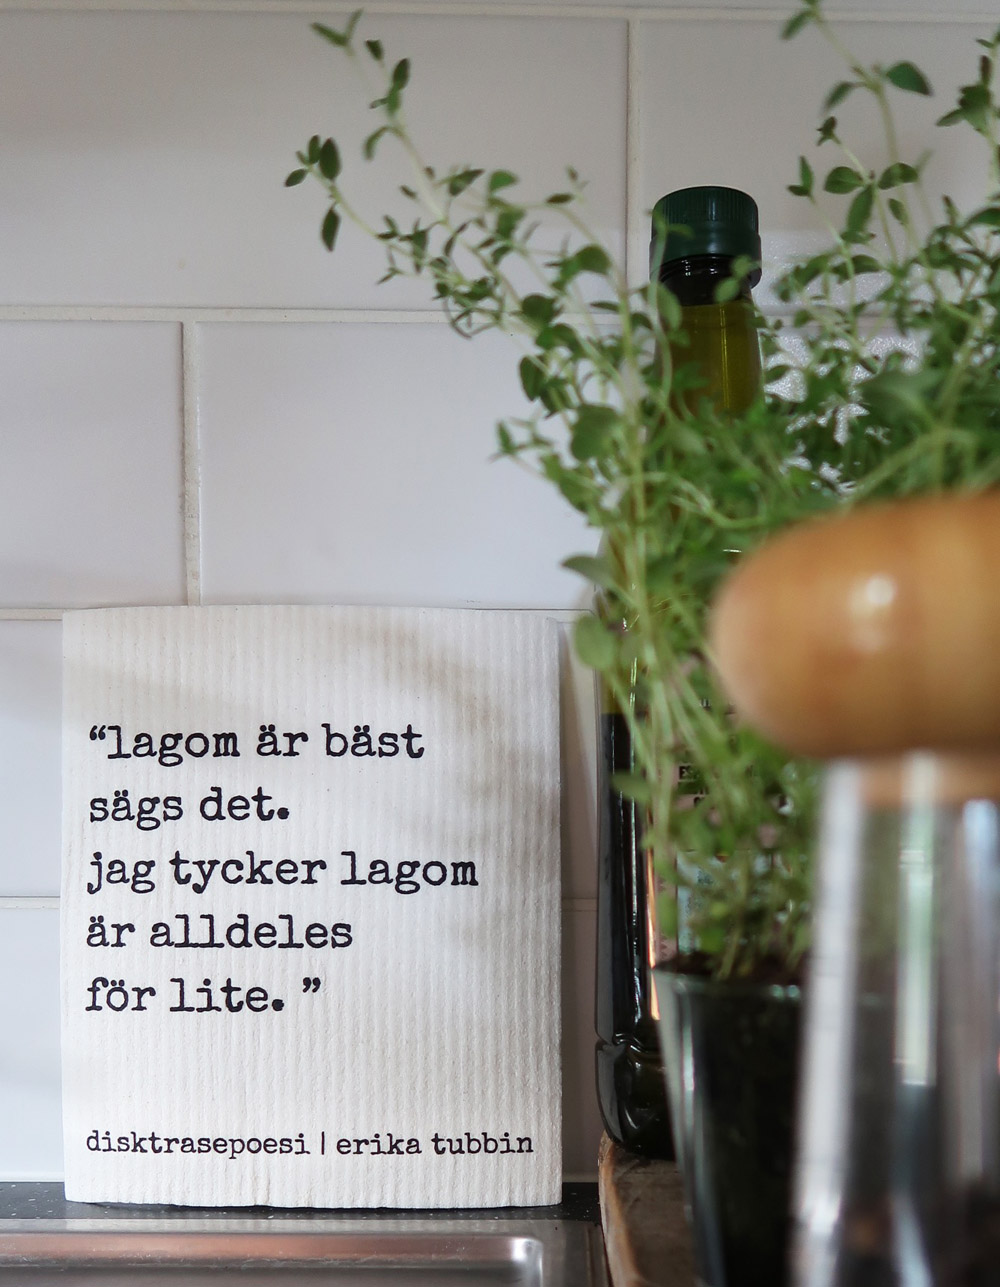 “lagom är bäst
sägs det.
jag tycker lagom
är alldeles
för lite.”
disktrasepoesi | erika tubbin